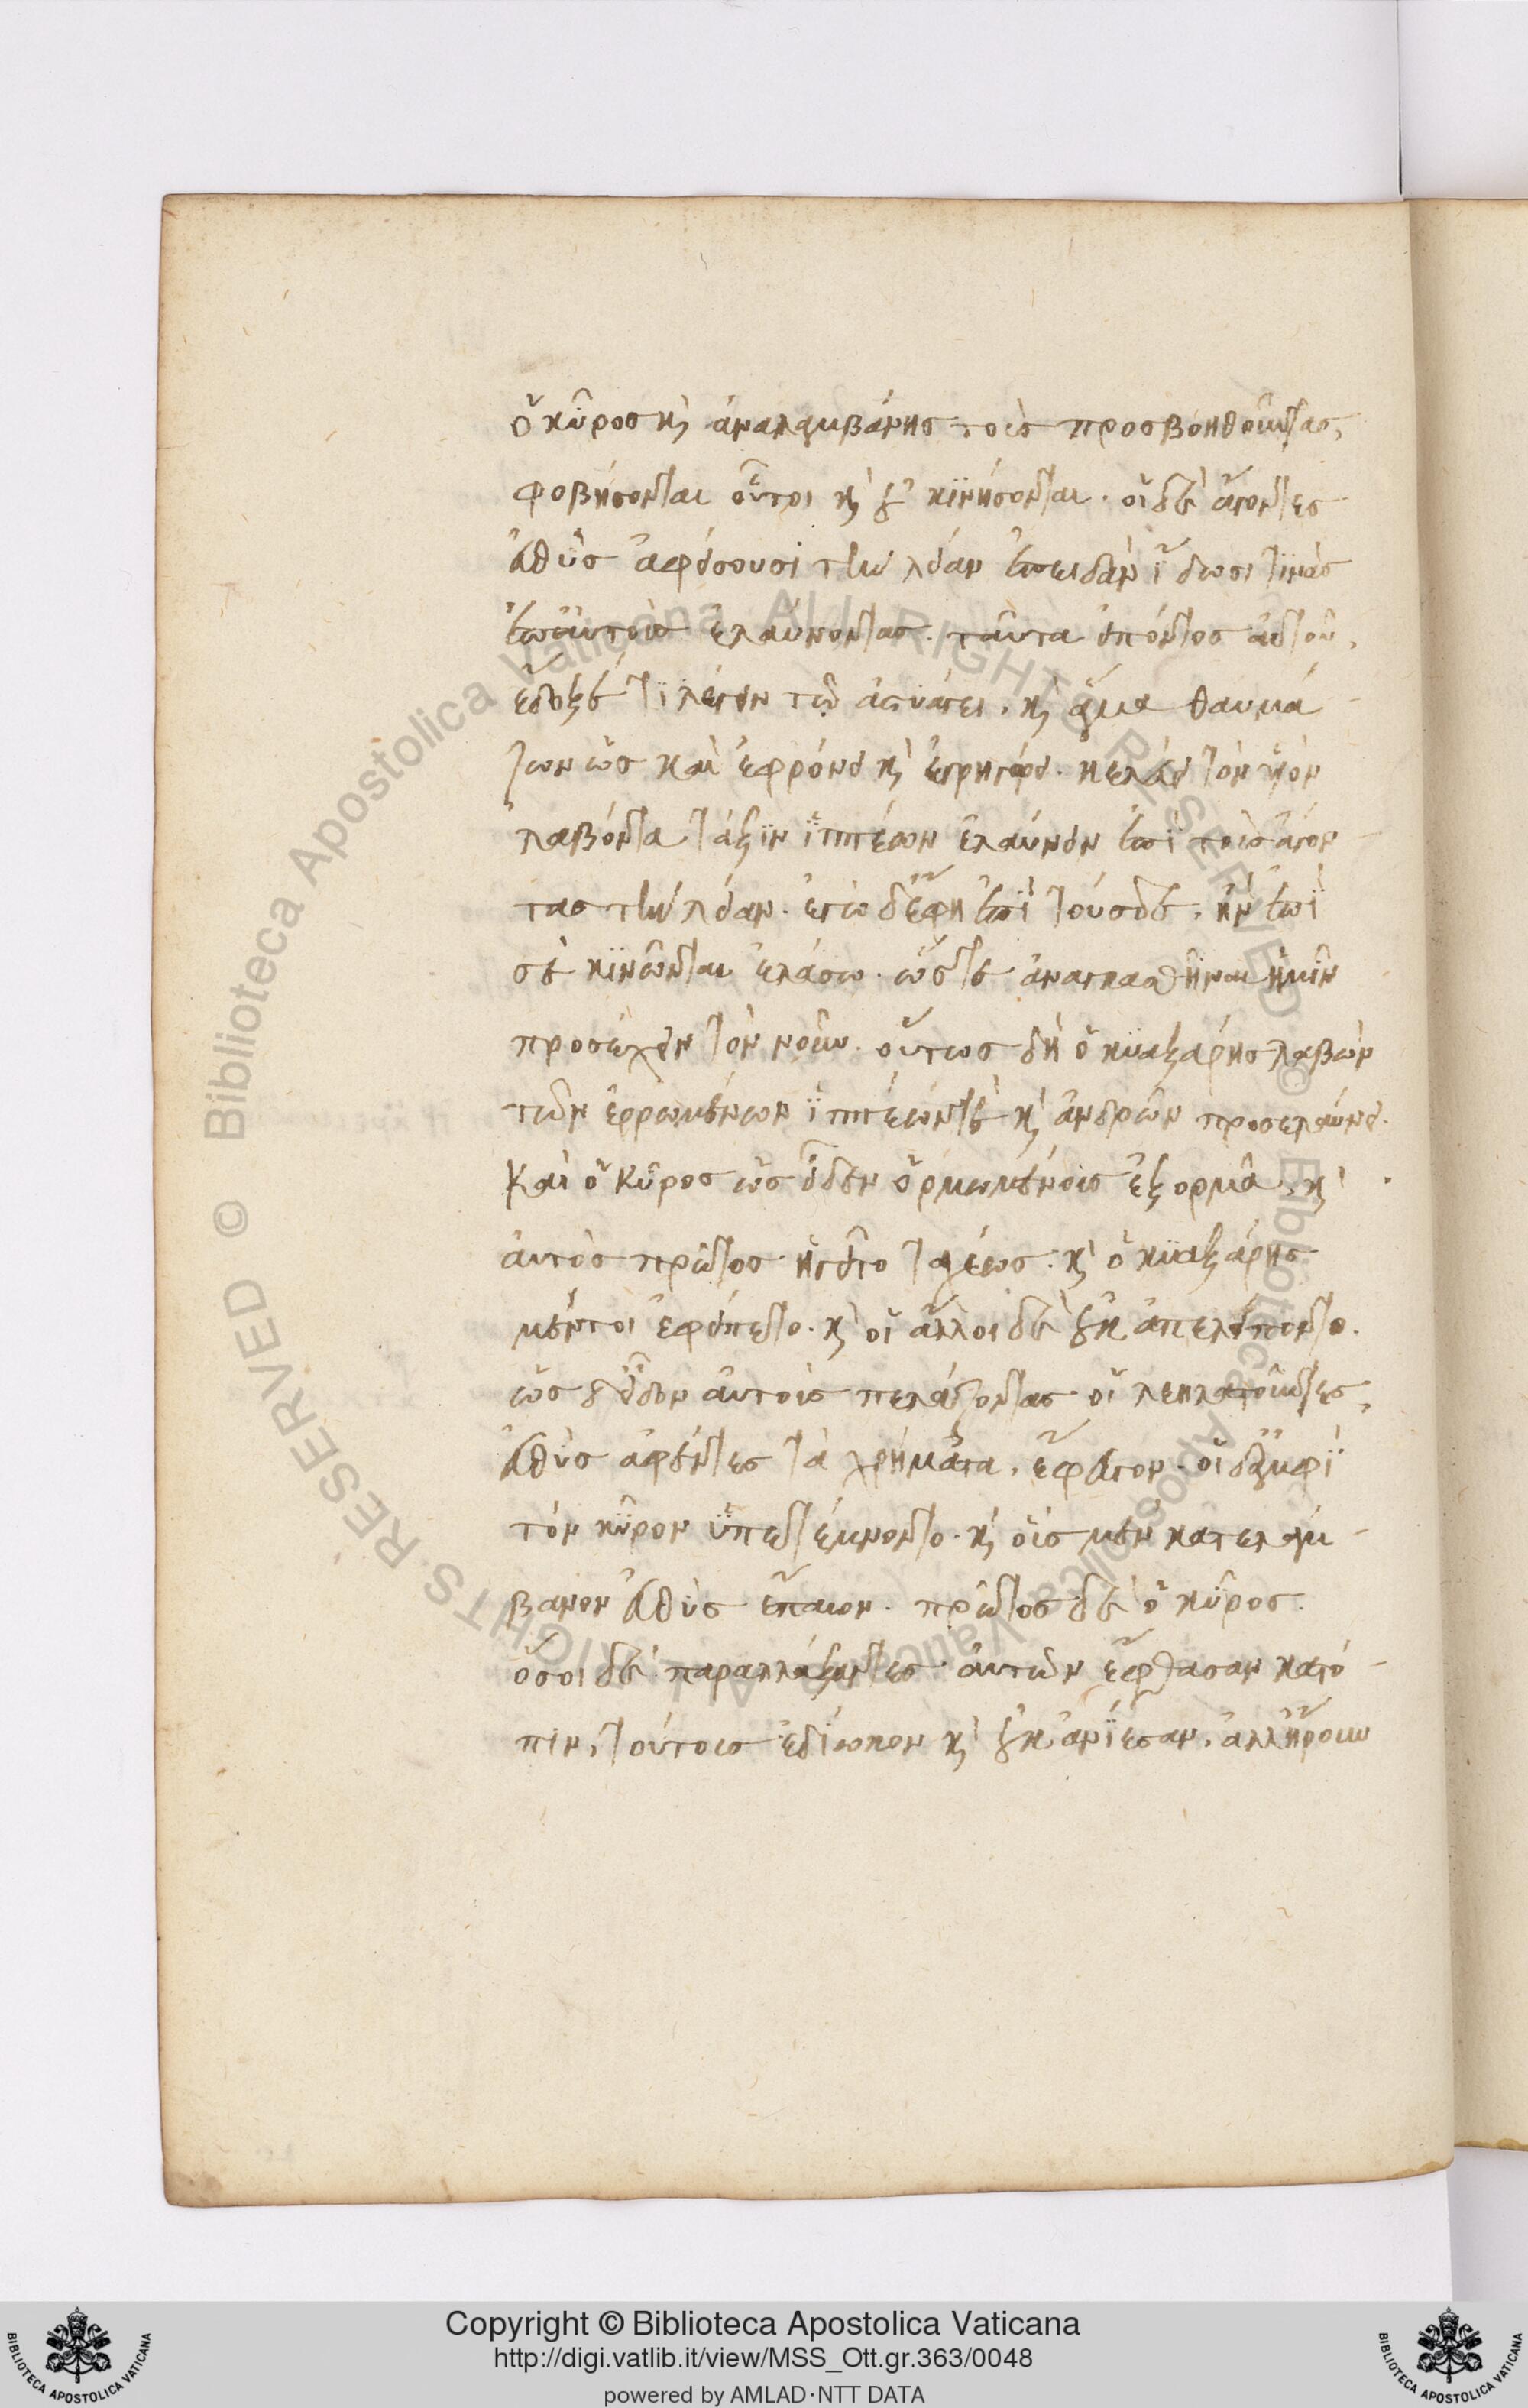 ὁ κῦρος κὶ ἀναλαμβάνης τοὺς προσβοηθοῦντας,
φοβήσονται οὗτοι κὶ οὐ κϊνήσονται. οἱ δὲ ἄγοντες
εὐθὺς ἀφήσουσι τὴν λείαν ἐπειδὰν ἴδωσι τινὰς
ἐπ' αὐτοὺς ἐλαύνοντας. ταῦτα εἰπόντος αὐτοῦ,
ἔδοξέ τϊ λέγειν τῷ ἀστυάγει. κὶ ἅμα θαυμά-
ζων ὡς καὶ ἐφρόνει κὶ ἐγρηγόρει. κελεύει τὸν υἱὸν
λαβόντα τάξϊν ἱππέων ἐλαύνειν ἐπὶ τοὺς ἄγον-
τας τὴν λείαν. ἐγὼ δ' ἔφη ἐπὶ τούσδε, ἢν ἐπὶ
σὲ κϊνῶνται ἐλάσω. ὥστε ἀναγκασθῆναι ἡμῖν
προσέχειν τὸν νοῦν. οὕτως δὴ ὁ κϋαξάρης λαβὼν
τῶν ἐρρωμένων ἱππέων τὲ κὶ ἀνδρῶν προσελαύνει.
Καὶ ὁ Κῦρος ὡς εἶδεν ὁρμωμένους ἐξορμᾶ. κὶ
αὐτὸς πρῶτος ἡγεῖτο ταχέως. κὶ ὁ κϋαξάρης
μέντοι ἐφείπετο. κὶ οἱ ἄλλοι δὲ οὐκ ἀπελείποντο.
ὡς δ' εἶδον αὐτοὺς πελάζοντας οἱ λεηλατοῦντες,
εὐθὺς ἀφέντες τὰ χρήματα, ἔφευγον. οἱ δ' ἀμφὶ
τὸν κῦρον ὑπετέμνοντο. κὶ οὓς μὲν κατελάμ-
βανον εὐθὺς ἔπαιον. πρῶτος δὲ ὁ κῦρος.
ὅσοι δὲ παραλλάξαντες αὐτῶν ἔφθασαν κατό-
πιν, τούτους ἐδίωκον κὶ οὐκ ἀνίεσαν. ἀλλ' ᾕρουν
Copyright © Biblioteca Apostolica Vaticana
http://digi.vatlib.it/view/MSS_Ott.gr.363/0048
powered by AMLAD·NTT DATA